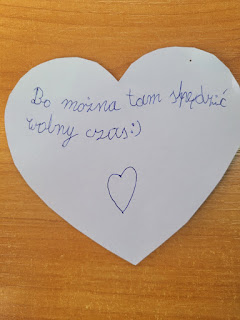 Bo można tam spędzić
wolny czas:)